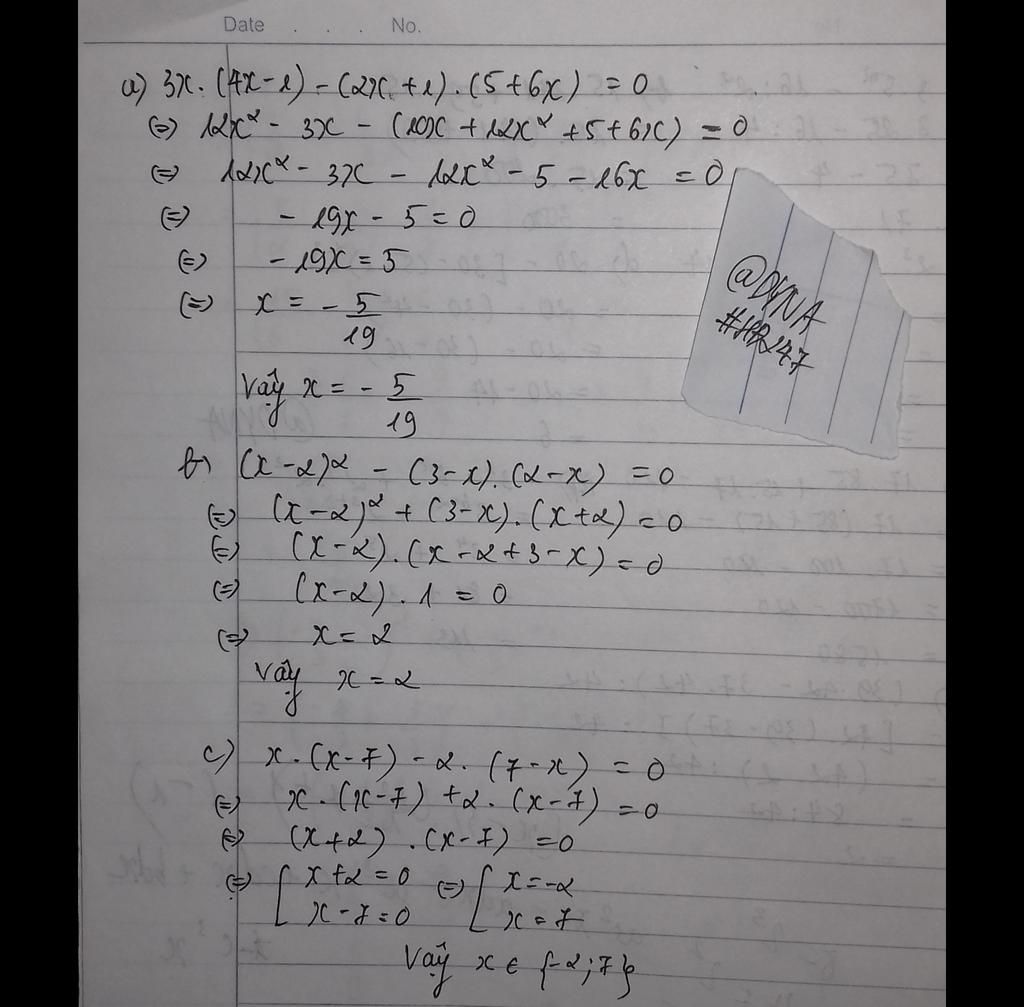 Date . . . No.
a) 3x. (4x-1) - (2x+1). (5+6x) = 0
(=) 12x² - 3x - (10x + 12x² + 5 + 6x) = 0
(=) 12x² - 3x - 12x² - 5 - 16x = 0
(=) - 19x - 5 = 0
(=) - 19x = 5
(=) x = - 5/19
Vậy x = - 5/19
@DYNA
#HD247
b) (x-2)² - (3-x). (2-x) = 0
(=) (x-2)² + (3-x). (x+2) = 0
(=) (x-2). (x-2+3-x) = 0
(=) (x-2). 1 = 0
(=) x = 2
Vậy x = 2
c) x. (x-7) - 2. (7-x) = 0
(=) x. (x-7) + 2. (x-7) = 0
(=) (x+2) . (x-7) = 0
(=) [ x+2 = 0 (=) [ x = -2
x-7 = 0 x = 7
Vậy x ∈ {-2; 7}